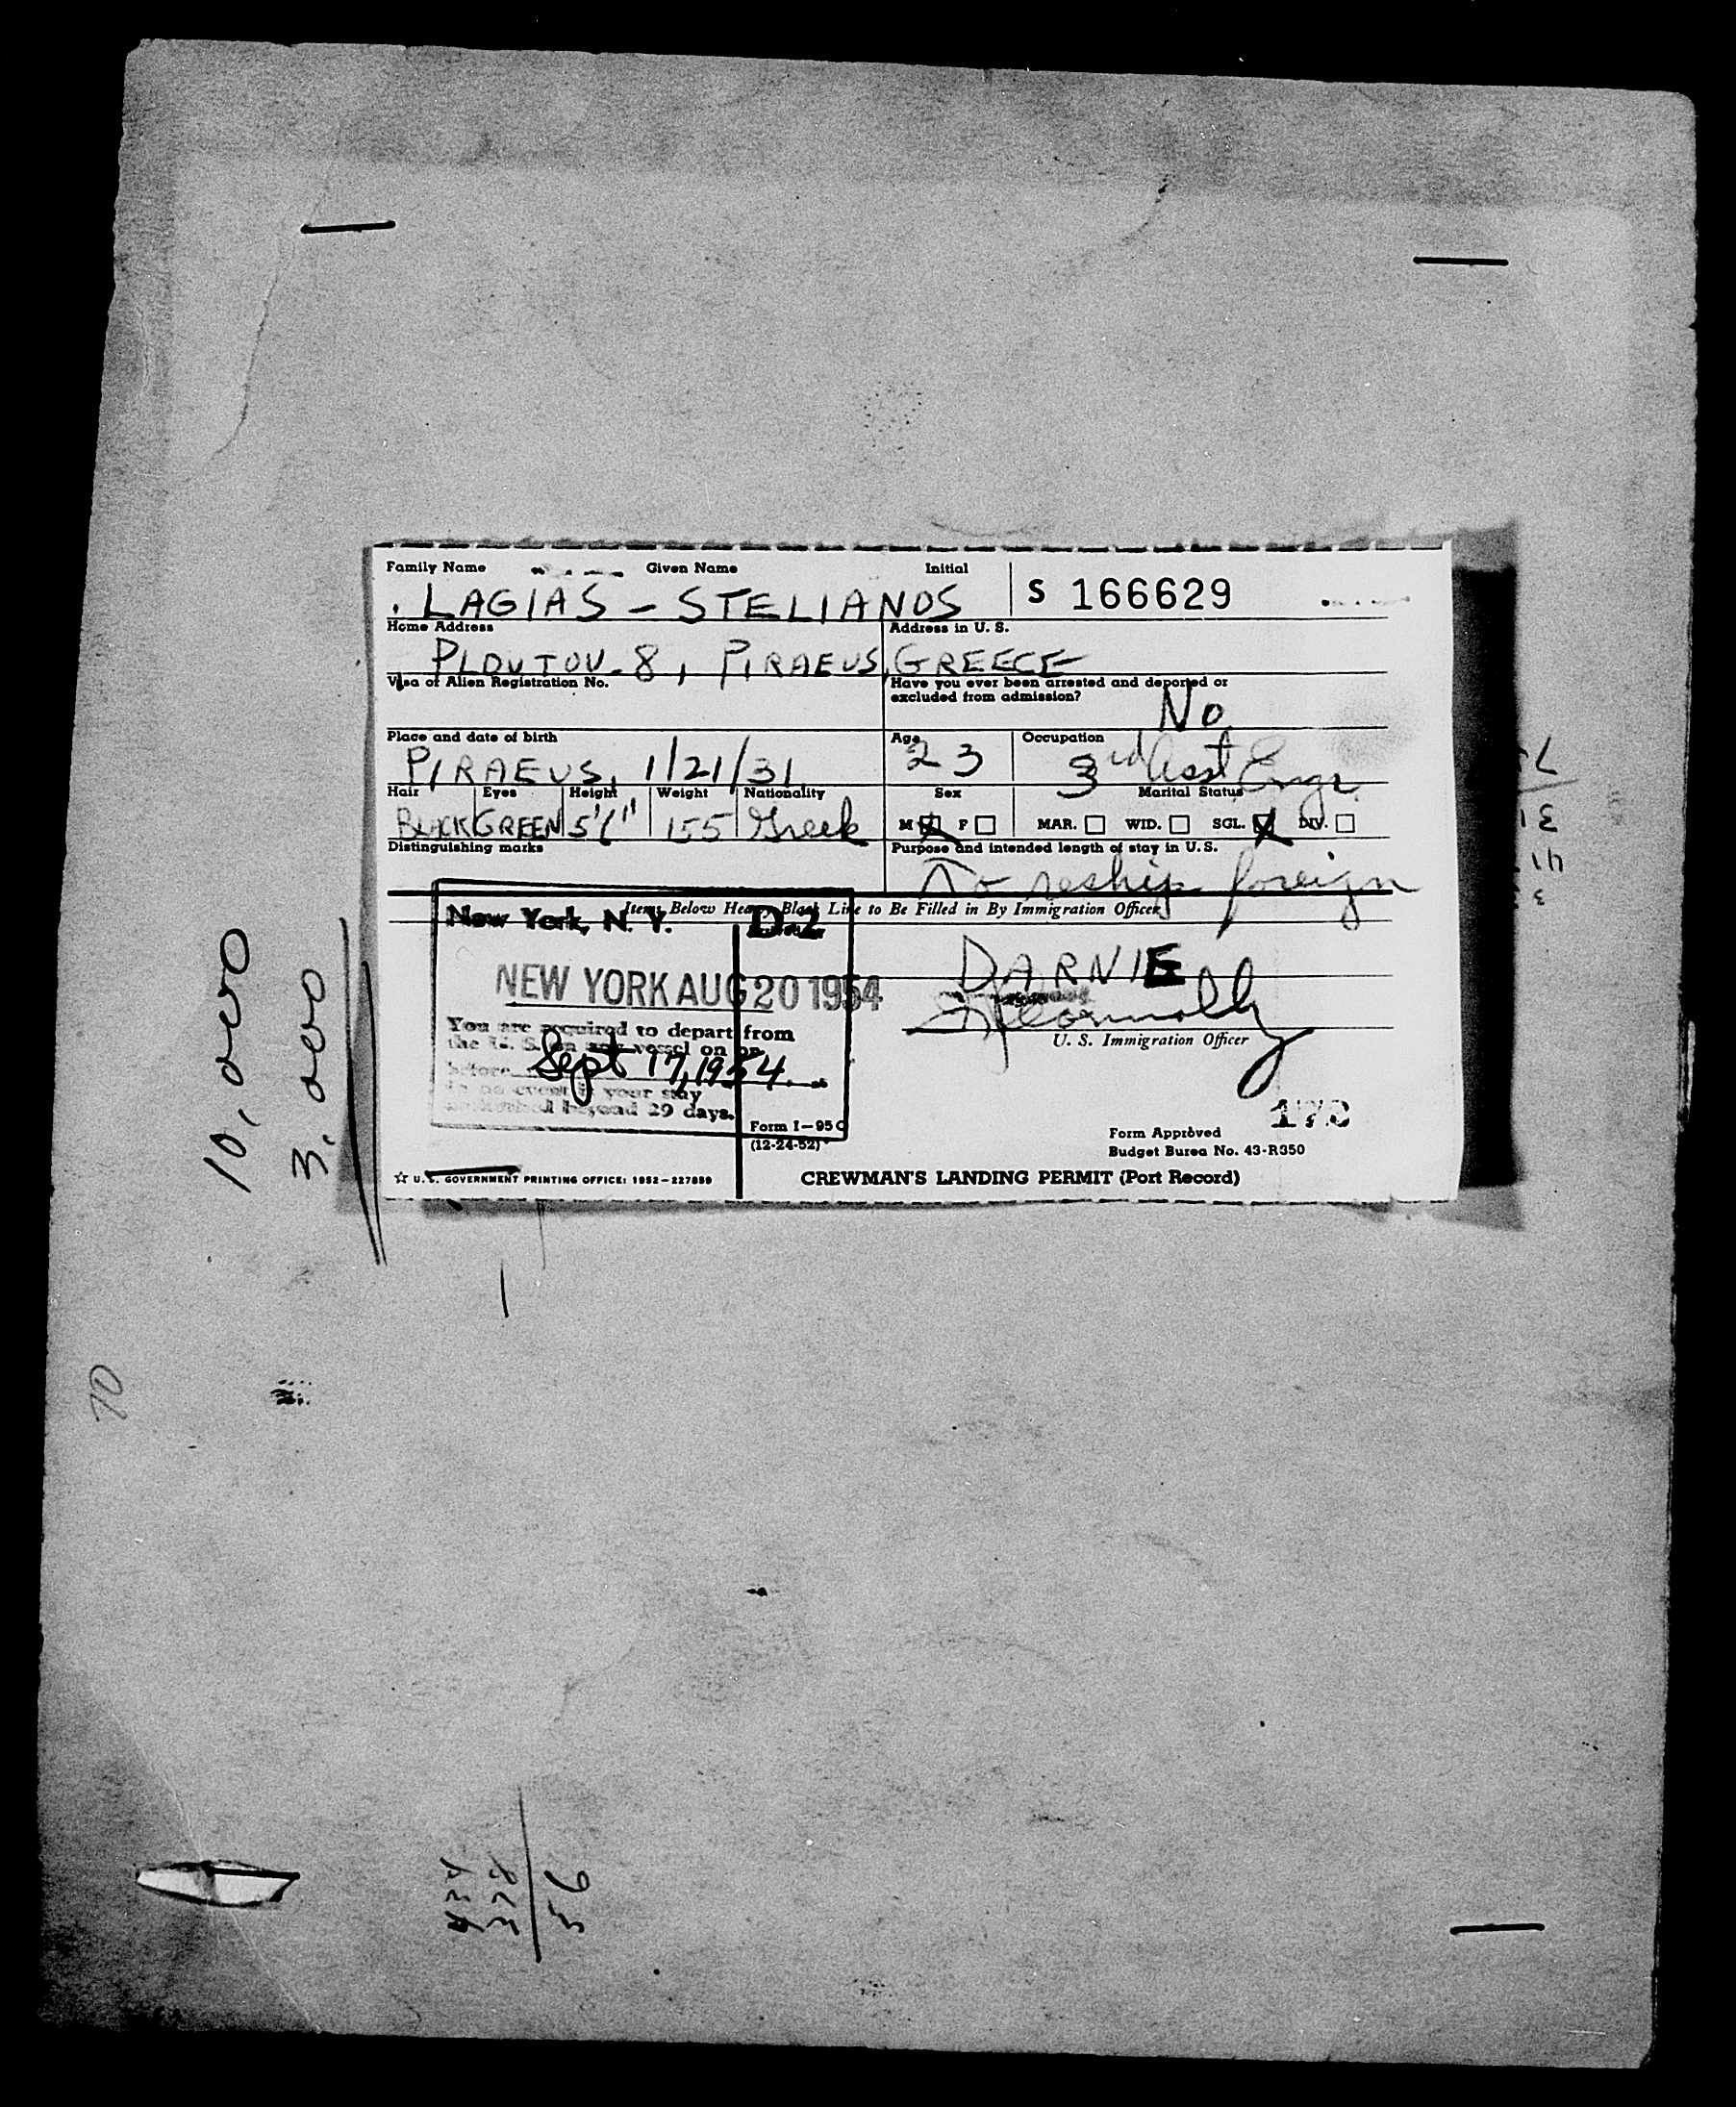 Family Name Given Name Initial
LAGIAS - STELIANOS S 166629
Home Address Address in U. S.
PLOUTOU-8, PIRAEUS, GREECE
Visa of Alien Registration No. Have you ever been arrested and deported or
excluded from admission?
No
Place and date of birth Age Occupation
PIRAEUS, 1/21/31 23 3rd Asst Engr.
Hair Eyes Height Weight Nationality Sex Marital Status
BLACK GREEN 155 Greek M F MAR. WID. SGL. DIV.
Distinguishing marks Purpose and intended length of stay in U. S.
To reship foreign
Items Below Heavy Black Line to Be Filled in By Immigration Officer
New York, N. Y. D-2
DARNIE
NEW YORK AUG 20 1954
You are required to depart from
the U. S. on any vessel on or
before Sept 17, 1954
in no event is your stay
beyond 29 days.
U. S. Immigration Officer
Form I-95 C
(12-24-52)
Form Approved
Budget Burea No. 43-R350
☆ U. S. GOVERNMENT PRINTING OFFICE: 1952-227889
CREWMAN'S LANDING PERMIT (Port Record)
10,000
3,000
70